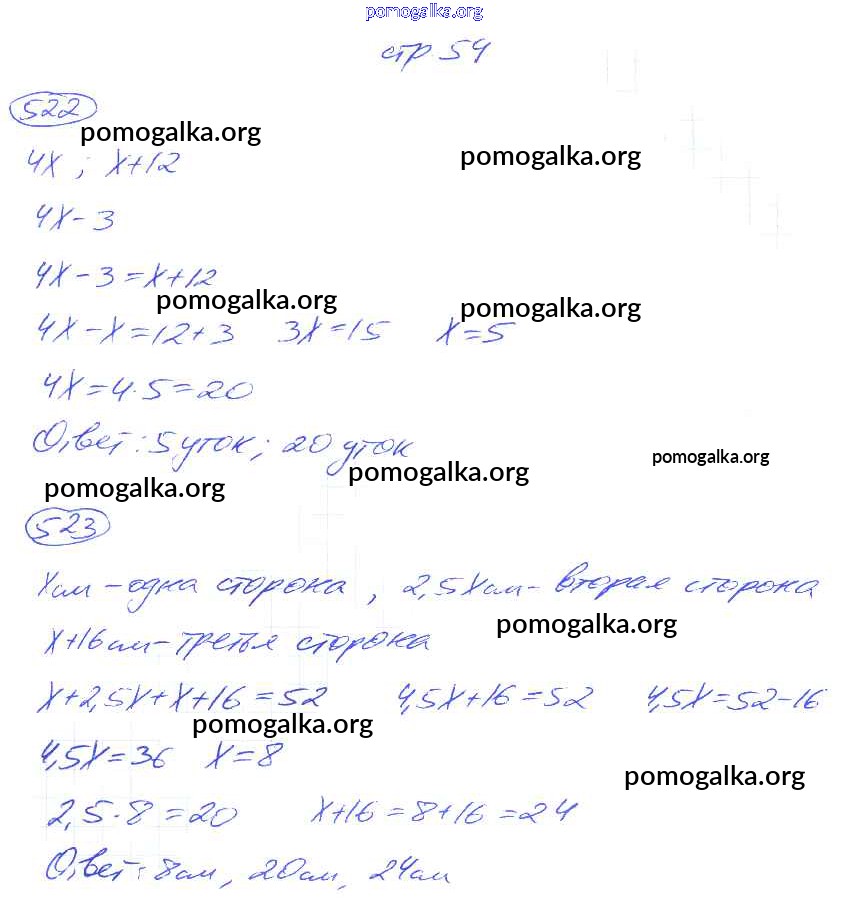 pomogalka.org
стр. 54
522
pomogalka.org
4x ; x+12
pomogalka.org
4x - 3
4x - 3 = x+12
pomogalka.org
pomogalka.org
4x - x = 12+3 3x = 15 x = 5
4x = 4·5 = 20
Ответ: 5 уток; 20 уток
pomogalka.org
pomogalka.org
pomogalka.org
523
x см - одна сторона, 2,5x см - вторая сторона
pomogalka.org
x+16 см - третья сторона
x+2,5x+x+16 = 52 4,5x+16 = 52 4,5x = 52-16
pomogalka.org
4,5x = 36 x = 8
pomogalka.org
2,5·8 = 20 x+16 = 8+16 = 24
Ответ: 8см, 20см, 24см